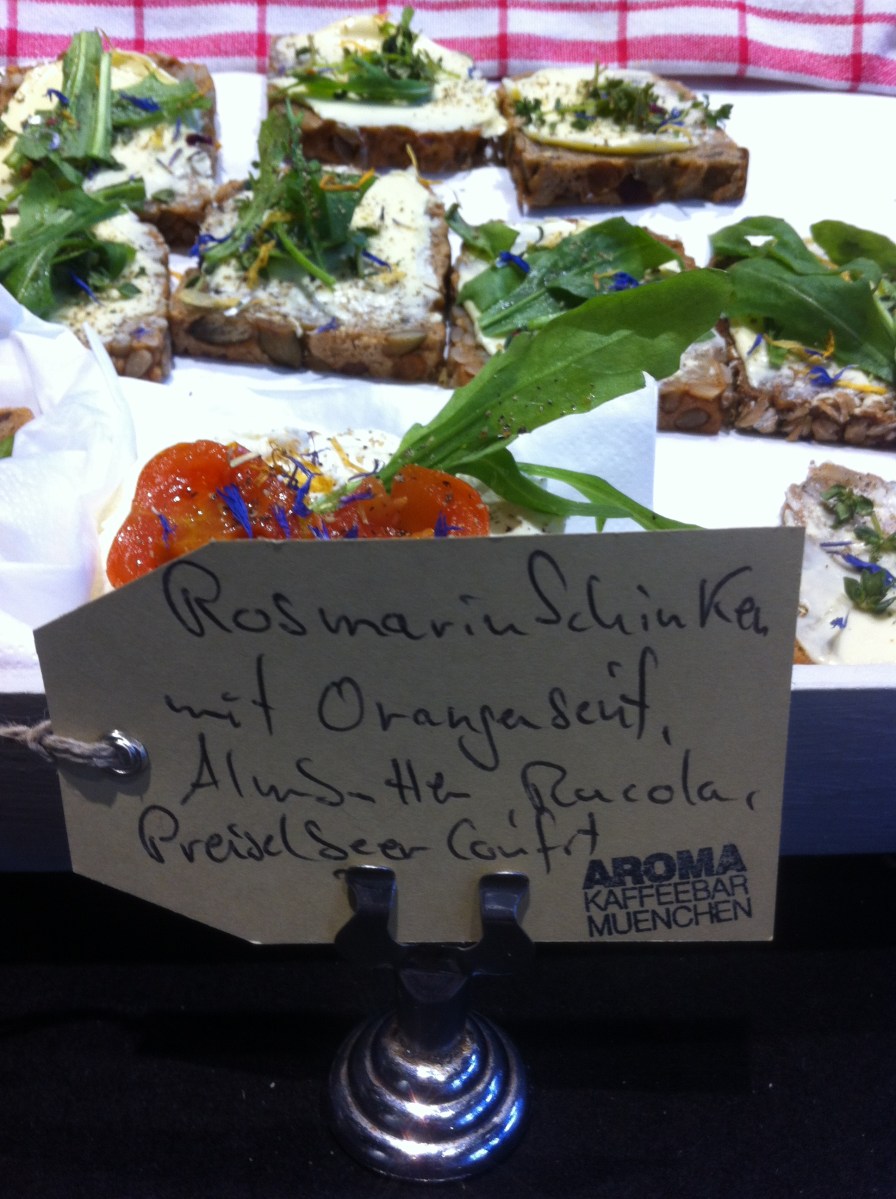 Rosmarin Schinken
mit Orangensenf,
Almbutter, Rucola,
Preiselbeer Confit
AROMA
KAFFEEBAR
MUENCHEN